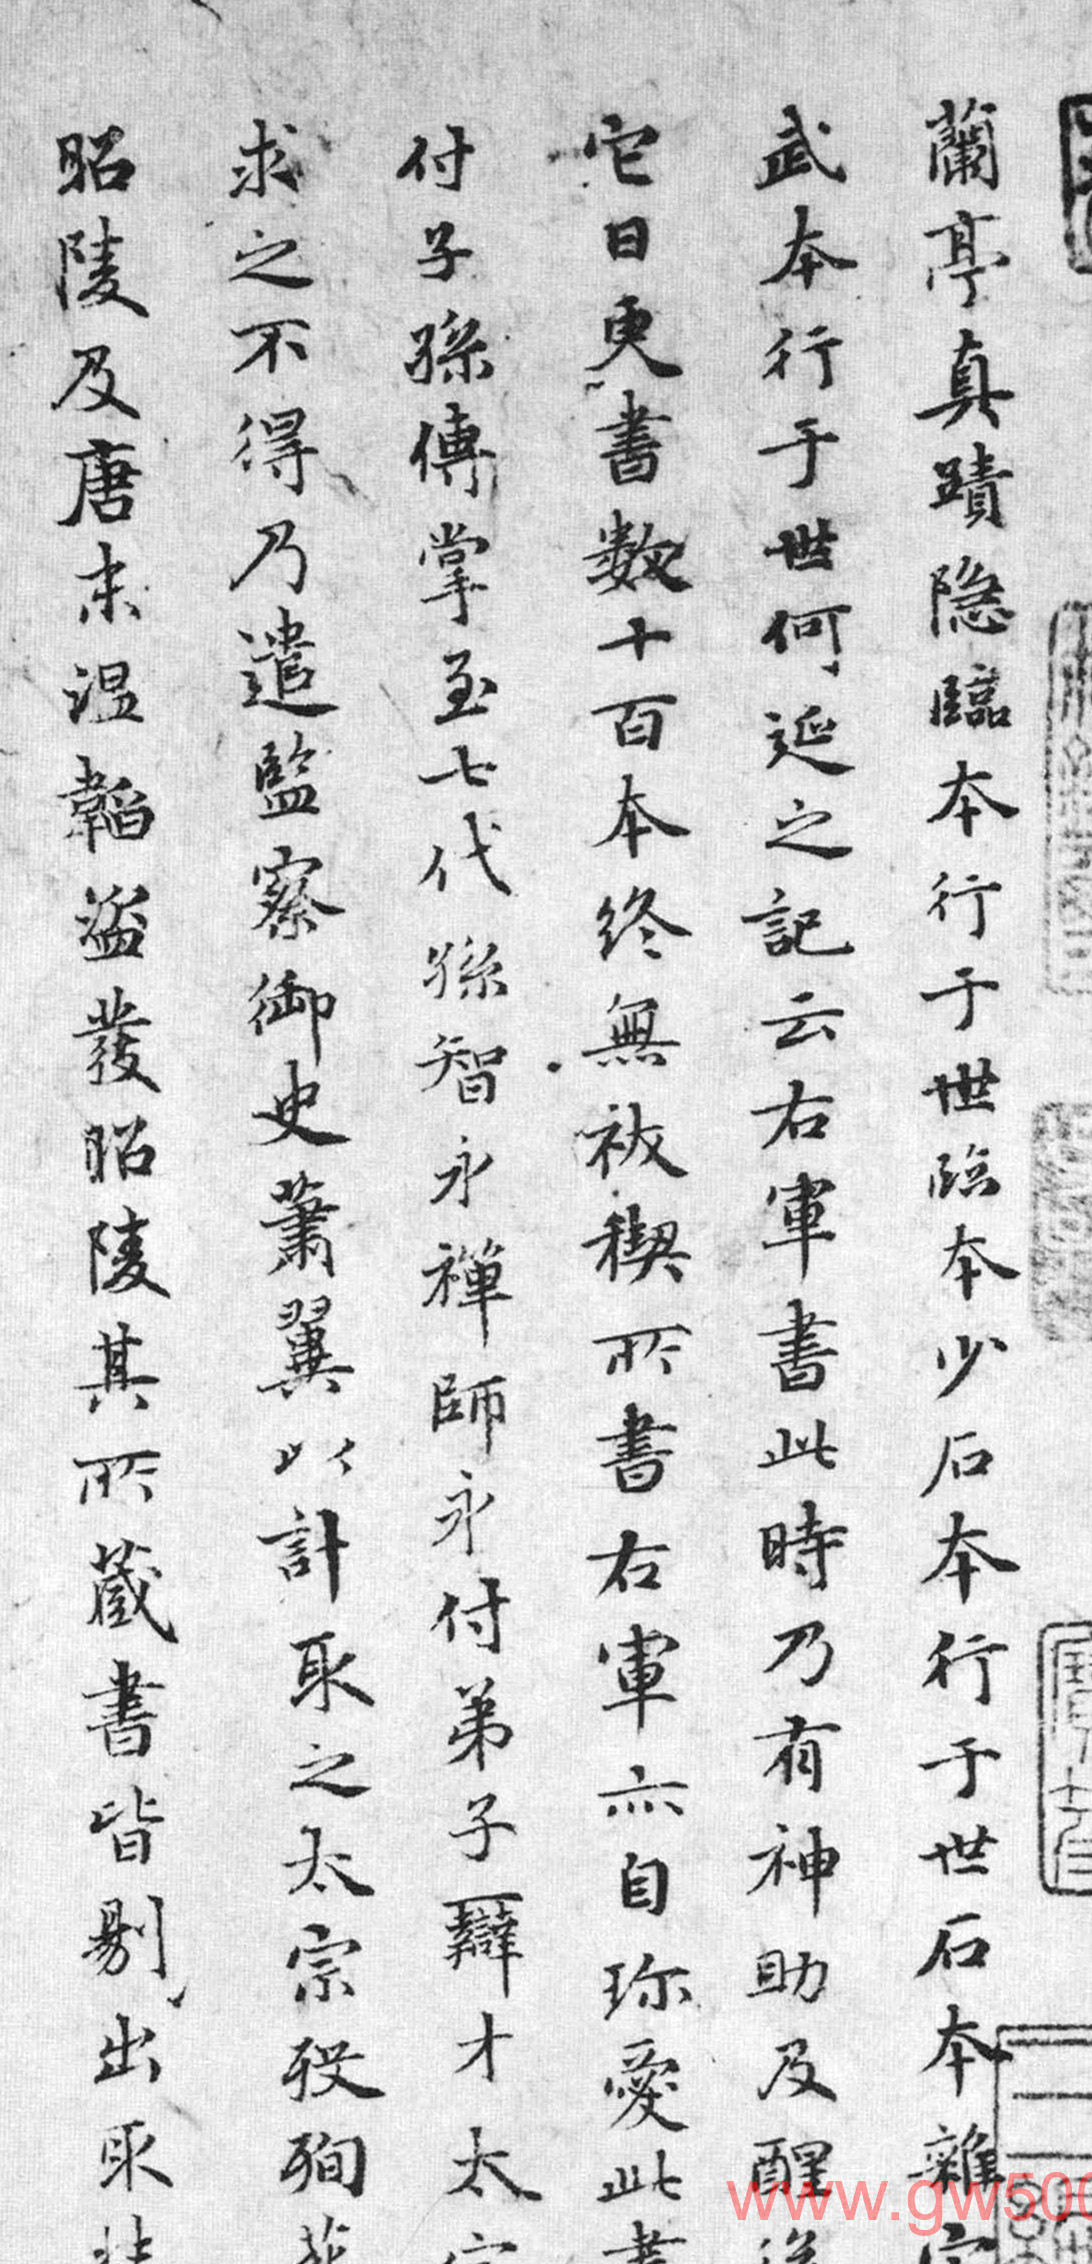 蘭亭真蹟隐臨本行于世臨本少石本行于世石本雜定
武本行于世何延之記云右軍書此時乃有神助及醒後
它日更書數十百本終無祓禊所書右軍亦自珎愛此書
付子孫傳掌至七代孫智永禪師永付弟子辯才太宗
求之不得乃遣監察御史蕭翼以計取之太宗歿殉葬
昭陵及唐末温韜盜發昭陵其所蔵書皆剔出取裝
www.gw500